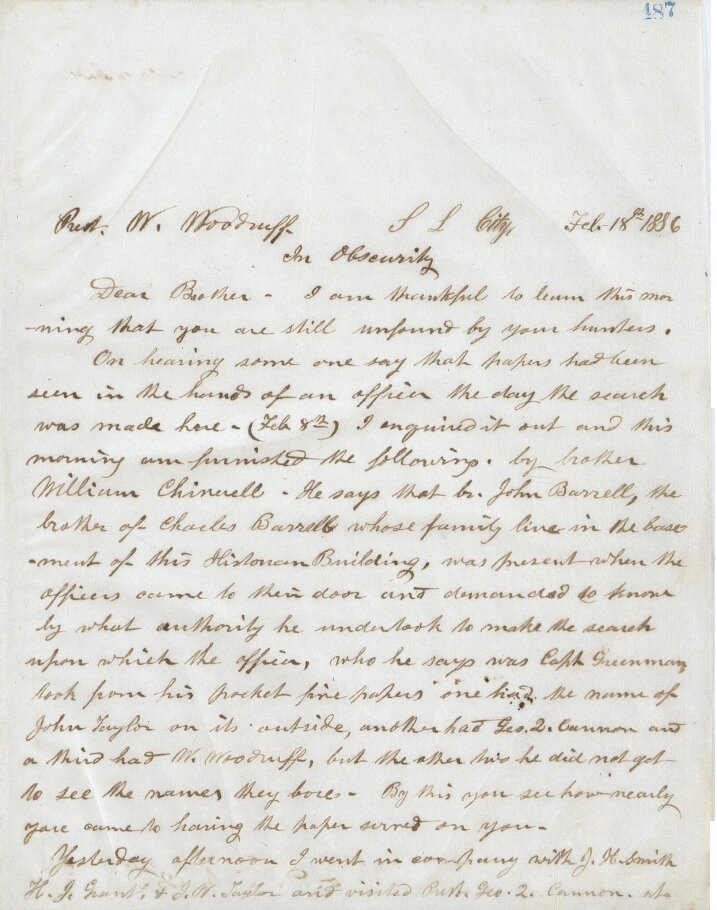 187
Prest. W. Woodruff S L City, Feb. 18th 1886
In Obscurity
Dear Brother - I am thankful to learn this mor
-ning that you are still unfound by your hunters.
On hearing some one say that papers had been
seen in the hands of an officer the day the search
was made here - (Feb 8th) I enquired it out and this
morning am furnished the following. by brother
William Chinwell - He says that br. John Barrell, the
brother of Charles Barrell whose family live in the base
-ment of this Historian Building, was present when the
officers came to their door and demanded to know
by what authority he undertook to make the search
upon which the officer, who he says was Capt Greenman
took from his pocket five papers one had the name of
John Taylor on its outside, another had Geo. Q. Cannon and
a third had W. Woodruff, but the other two he did not get
to see the names they bore - By this you see how nearly
you came to having the paper served on you -
Yesterday afternoon I went in company with J. H. Smith
H. J. Grant, & J. W. Taylor and visited Prest. Geo. Q. Cannon. at